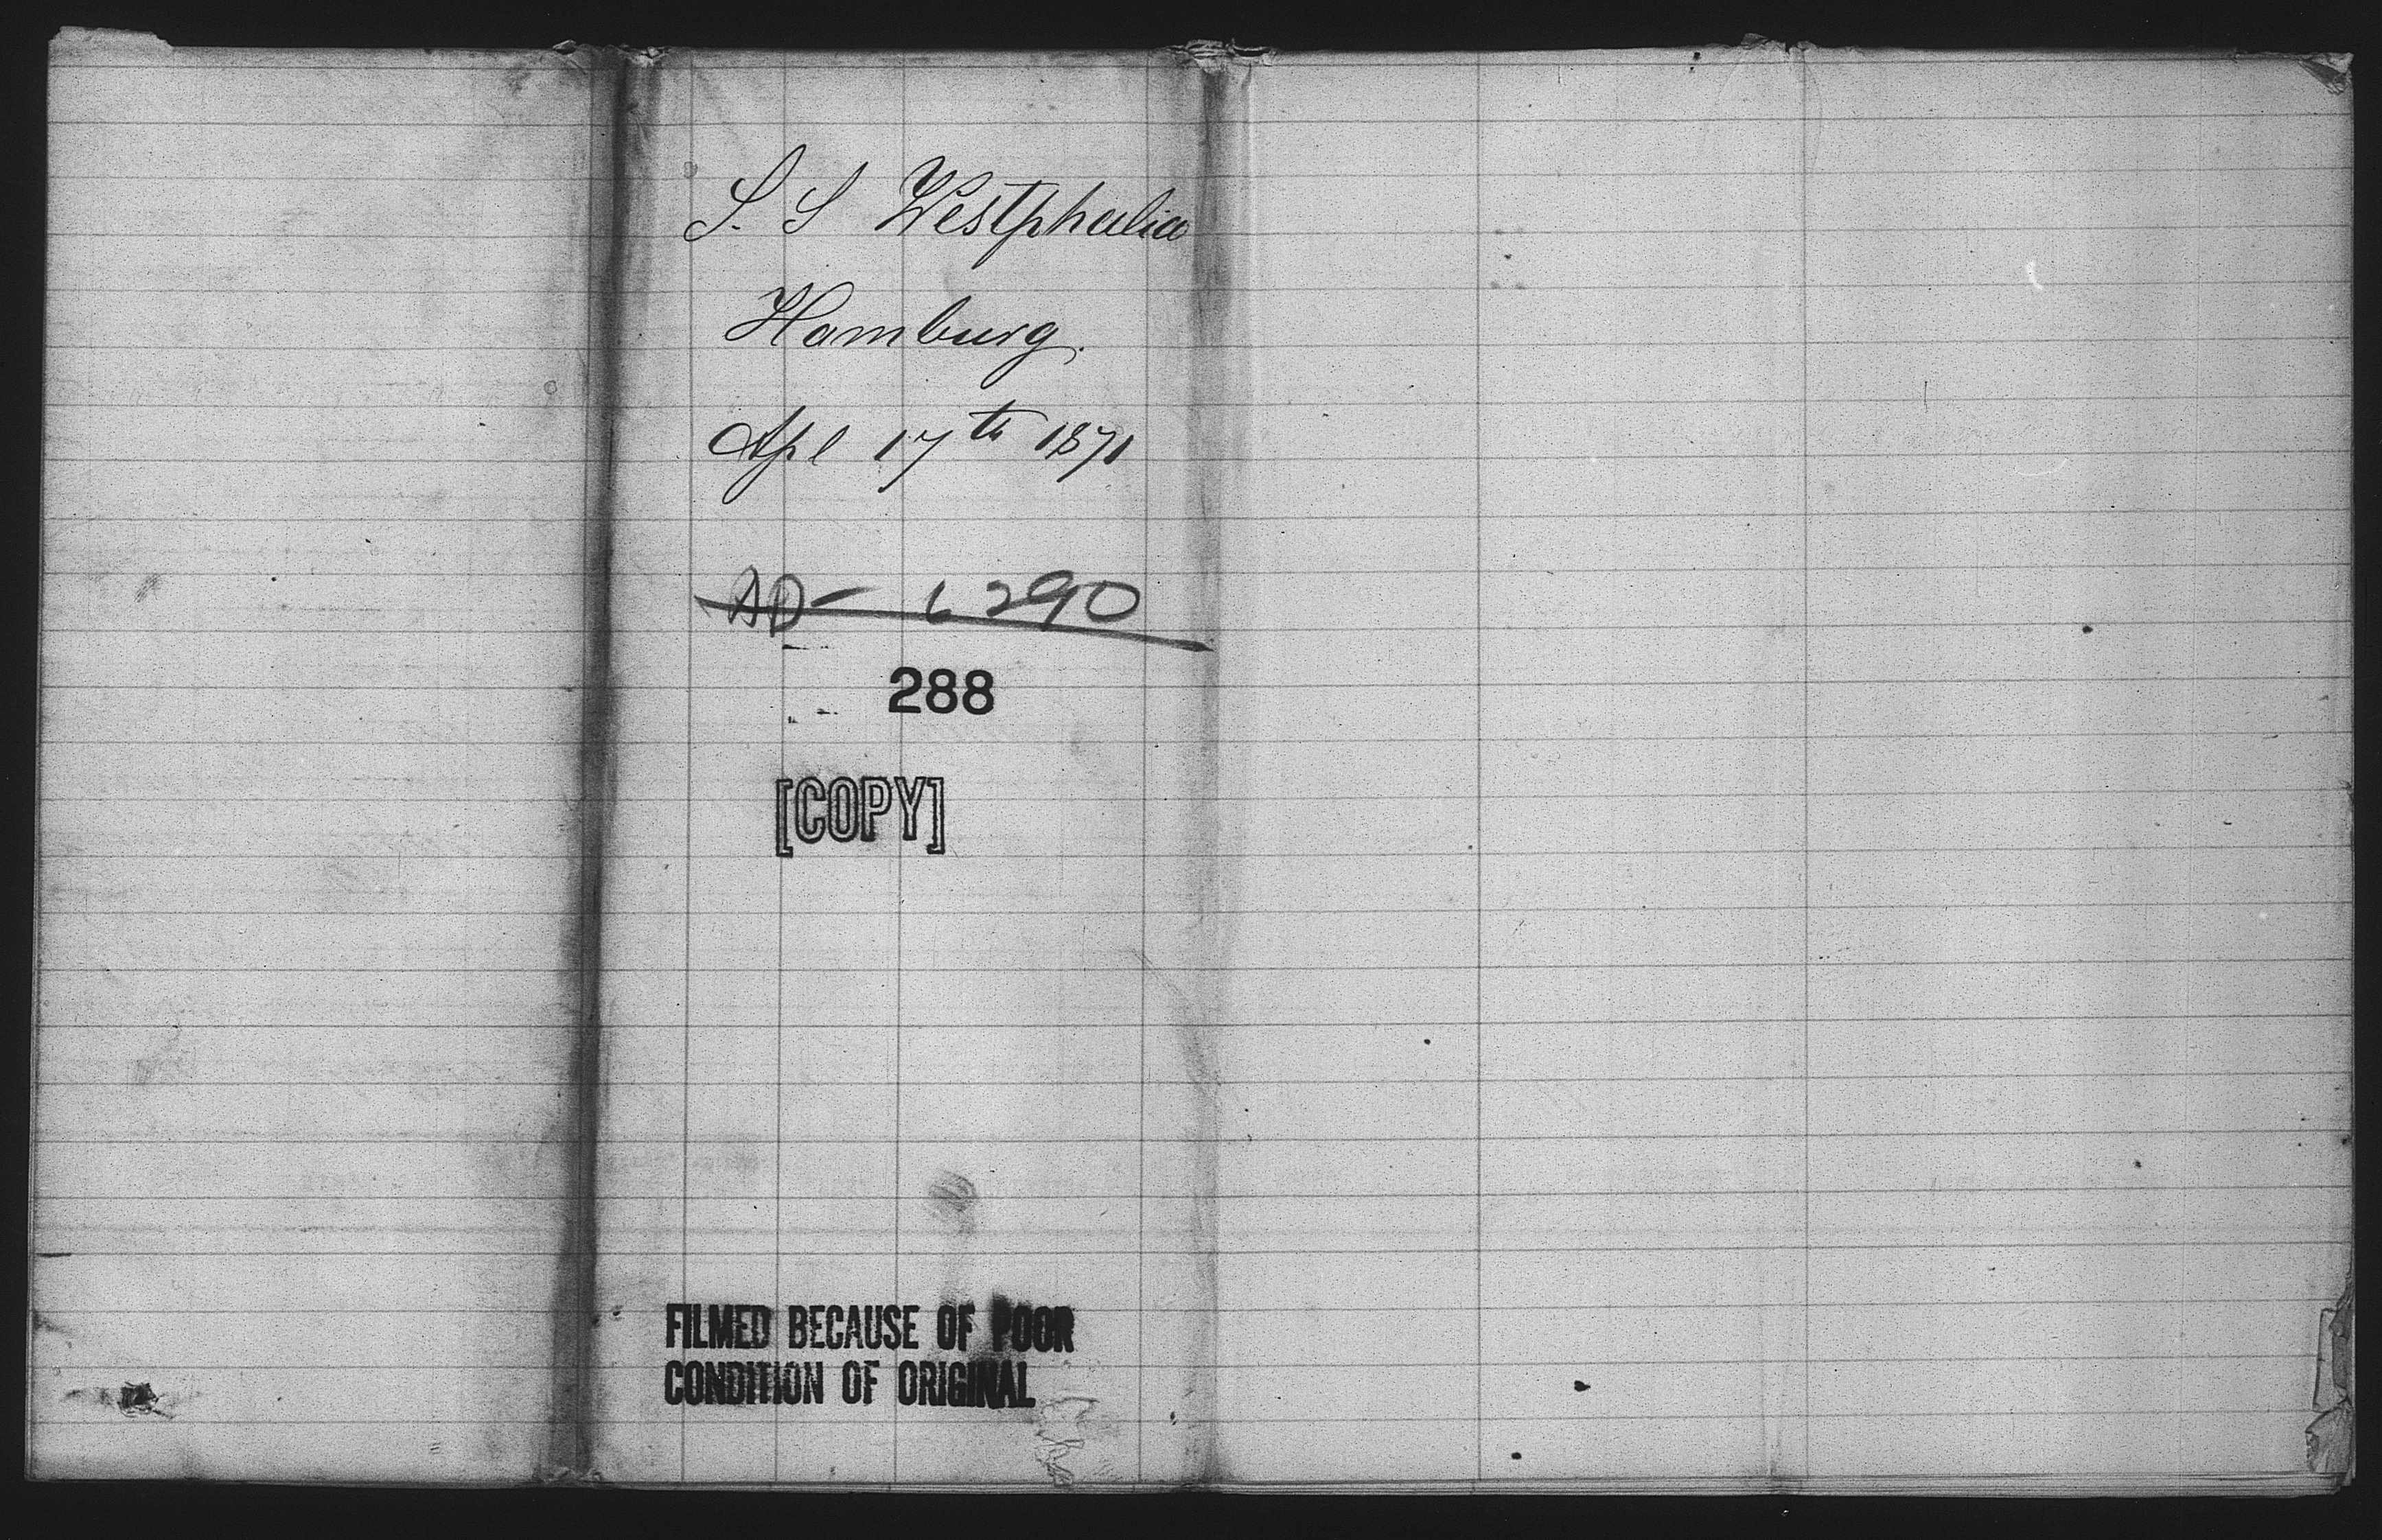 S. S Westphalia
Hamburg.
Apl 17th 1871
AD- 6290
288
[COPY]
FILMED BECAUSE OF POOR
CONDITION OF ORIGINAL